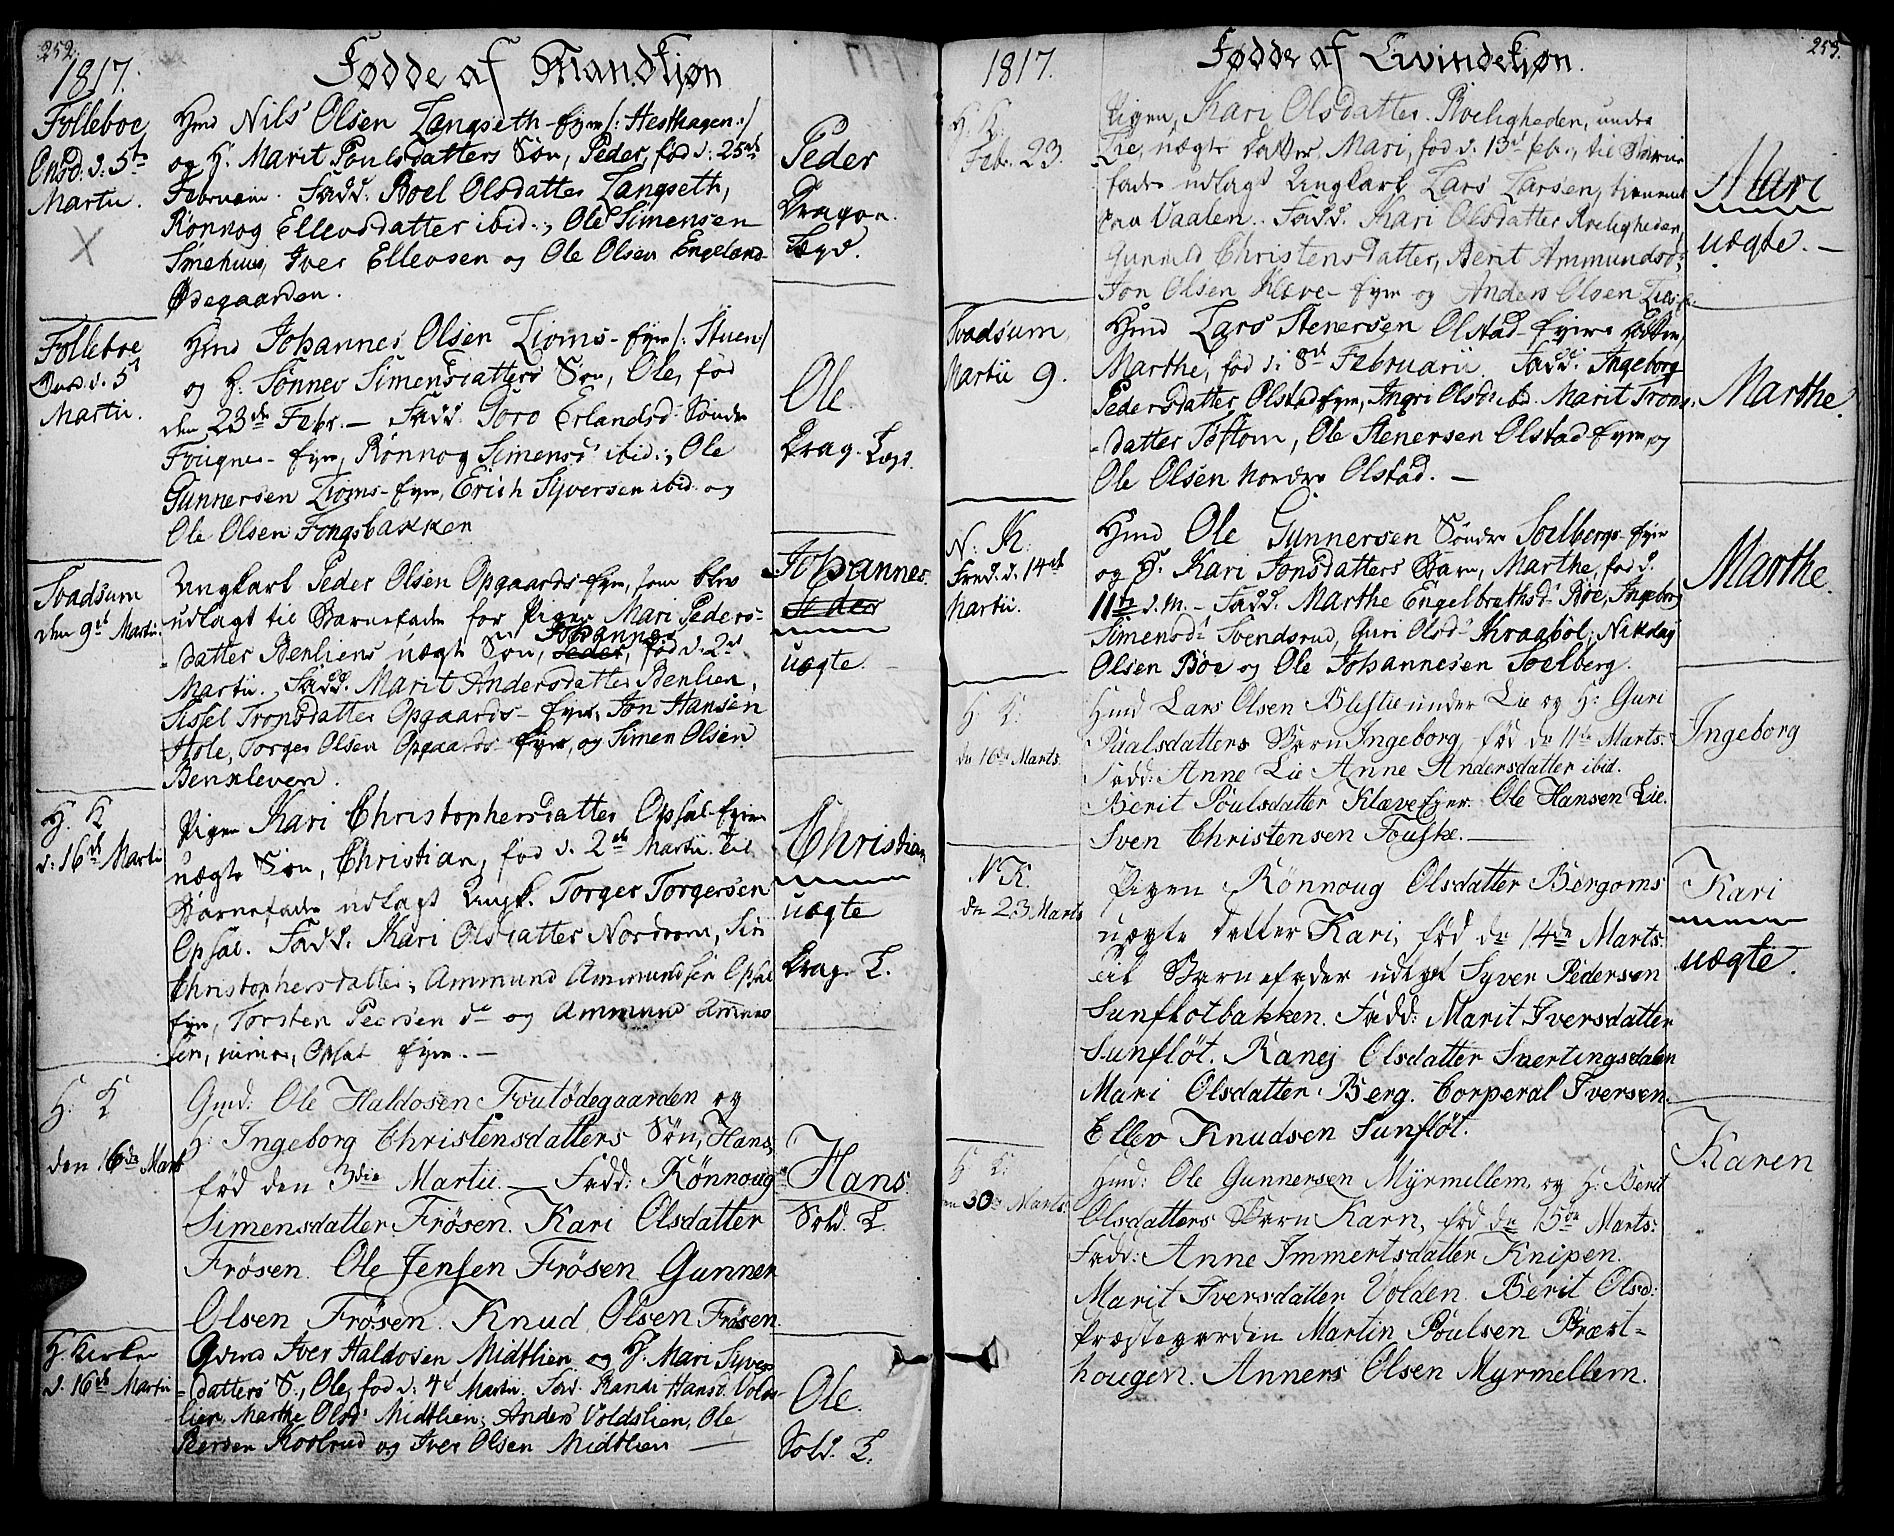 252.
1817.
Fødde af Mandkjøn
Folleboe
Onsd. d. 5te
Martii.
Hmd Nils Olsen Langseth-eyer /: Hesthagen :/
og H. Marit Poulsdatters Søn, Peder, fød d: 25de
Februarii. Fadd. Boel Olsdatter Langseth,
Rønnog Ellevsdatter ibid:, Ole Simensen
Smehuus, Iver Ellevsen og Ole Olsen Engeland-
Ødegaarden.
Peder
Dragon
Lægd.
Folleboe
Onsd. d. 5t
Martii.
Hmd Johannes Olsen Lioms-eyer /: Stuen :/
og H. Sønnev Simensdatters Søn, Ole, fød
den 23de Febr. — Fadd. Goro Erlandsd. Søndre
Fougner-eyer, Rønnog Simensd: ibid:, Ole
Gunnersen Lioms-eyer, Erich Syversen ibid. og
Ole Olsen Fongsbakken
Ole.
Drag. Lægd.
Svadsum
den 9de Martii
Ungkarl Peder Olsen Opgaards-eyer, som blev
udlagt til Barnefader for Pigen Mari Peders-
datter Benliens uægte Søn, Johannes
Peder, fød d. 2d
Martii. Fadd. Marit Andersdatter Benlien,
Sissel Tronsdatter Opgaards-eyer, Jon Hansen
Hole, Torger Olsen Opgaards-eyer, og Simen Olsen
Benkleven.
Johannes
Peder
uægte.
H. K
d: 16de Martii
Pigen Kari Christophersdatter Opsal-eyers
uægte Søn, Christian, fød d. 2de Martii til
Barnefader udlagt Ungk. Torger Torgersen
Opsal. Fadd. Kari Olsdatter Nordrom, Siri
Christophersdatter, Ammund Ammundsen Opsal
eyer, Torsten Peersen do og Ammund Ammund
sen, Opsal eyer. —
Christian
uægte
Drag. L.
H. K
den 16de Mart
Gmd: Ole Haldosen Foutødegaarden og
H: Ingeborg Christensdatters Søn, Hans,
fød den 3die Martii — Fadd: Rønnoug
Simensdatter Frøsen. Kari Olsdatter
Frøsen. Ole Jensen Frøsen Gunner
Olsen Frøsen. Knud Olsen Frøsen.
Hans.
Sold. L.
H. Kirke
d. 16de Martii
Gmd Iver Haldosen Midtlien og H. Mari Syvers
datters S., Ole, fød d: 4d Martii. Fad. Randi Hansd. Volds-
lien, Marthe Olsd: Midtlien, Anders Voldslien, Ole
Peersen Kostrud og Iver Olsen Midtlien —
Ole.
Sold. L.
1817.
Fødde af Qvindekjøn.
253.
H. K.
Febr. 23.
Pigen, Kari Olsdatter Roeligheden, under
Lie, uægte Datter, Mari, fød d. 13d Febr., til Barne
fader udlagt Ungkarl Lars Larsen, tienende
paa Vaalen. Fadd. Kari Olsdatter Roeligheden,
Gunnild Christensdatter, Berit Ammundsd:,
Jon Olsen Klæve-eyer og Anders Olsen Lies-e.
Mari
uægte. —
Svadsum,
Martii 9.
Hmd Lars Stenersen Olstad-eyers Datter,
Marthe, fød d: 8de Februarii. Fadd. Ingeborg
Pedersdatter Olstadeyer, Ingri Olsd: ibd. Marit Trons-
datter Toftom, Ole Stenersen Olstad-eyer, og
Ole Olsen Nordre Olstad. —
Marthe.
N: K:
Fred. d. 14de
Martii.
Hmd Ole Gunnersen Søndre Soelbergs-eyer
og H. Kari Jonsdatters Barn, Marthe, fød d.
11te d. M. — Fadd. Marthe Engelbrethsd: Bøe, Ingeborg
Simensd: Svendsrud, Guri Olsd: Kraabøl, Nikolay
Olsen Bøe og Ole Johannesen Soelberg.
Marthe.
H. K:
dn 16de Marts.
Hmd Lars Olsen Blestie under Lie og H: Guri
Poulsdatters Barn Ingeborg, fød dn 11te Marts.
Fadd: Anne Lie Anne Andersdatter ibid.
Berit Poulsdatter Klæveeyer. Ole Hansen Lie.
Sven Christensen Fouske. —
Ingeborg
N K.
dn 23 Marts
Pigen Rønnoug Olsdatter Bergoms
uægte Datter Kari, fød dn 14de Marts.
til Barnefader udlagt Syver Pedersen
Sunfløtbakken. Fadd: Marit Iversdatter
Sunfløt. Ranej Olsdatter Svertingsdalen
Mari Olsdatter Berg. Corperal Iversen.
Ellev Knudsen Sunfløt.
Kari
uægte.
H K:
den 30de Marts.
Hmd: Ole Gunnersen Myrmellem og H: Berit
Olsdatters Barn Karn, fød dn 15de Marts.
Fadd: Anne Immertsdatter Knipen.
Marit Iversdatter Volden. Berit Olsd:
Præstegarden Martin Poulsen Præst-
hougen. Anners Olsen Myrmellem.
Karen